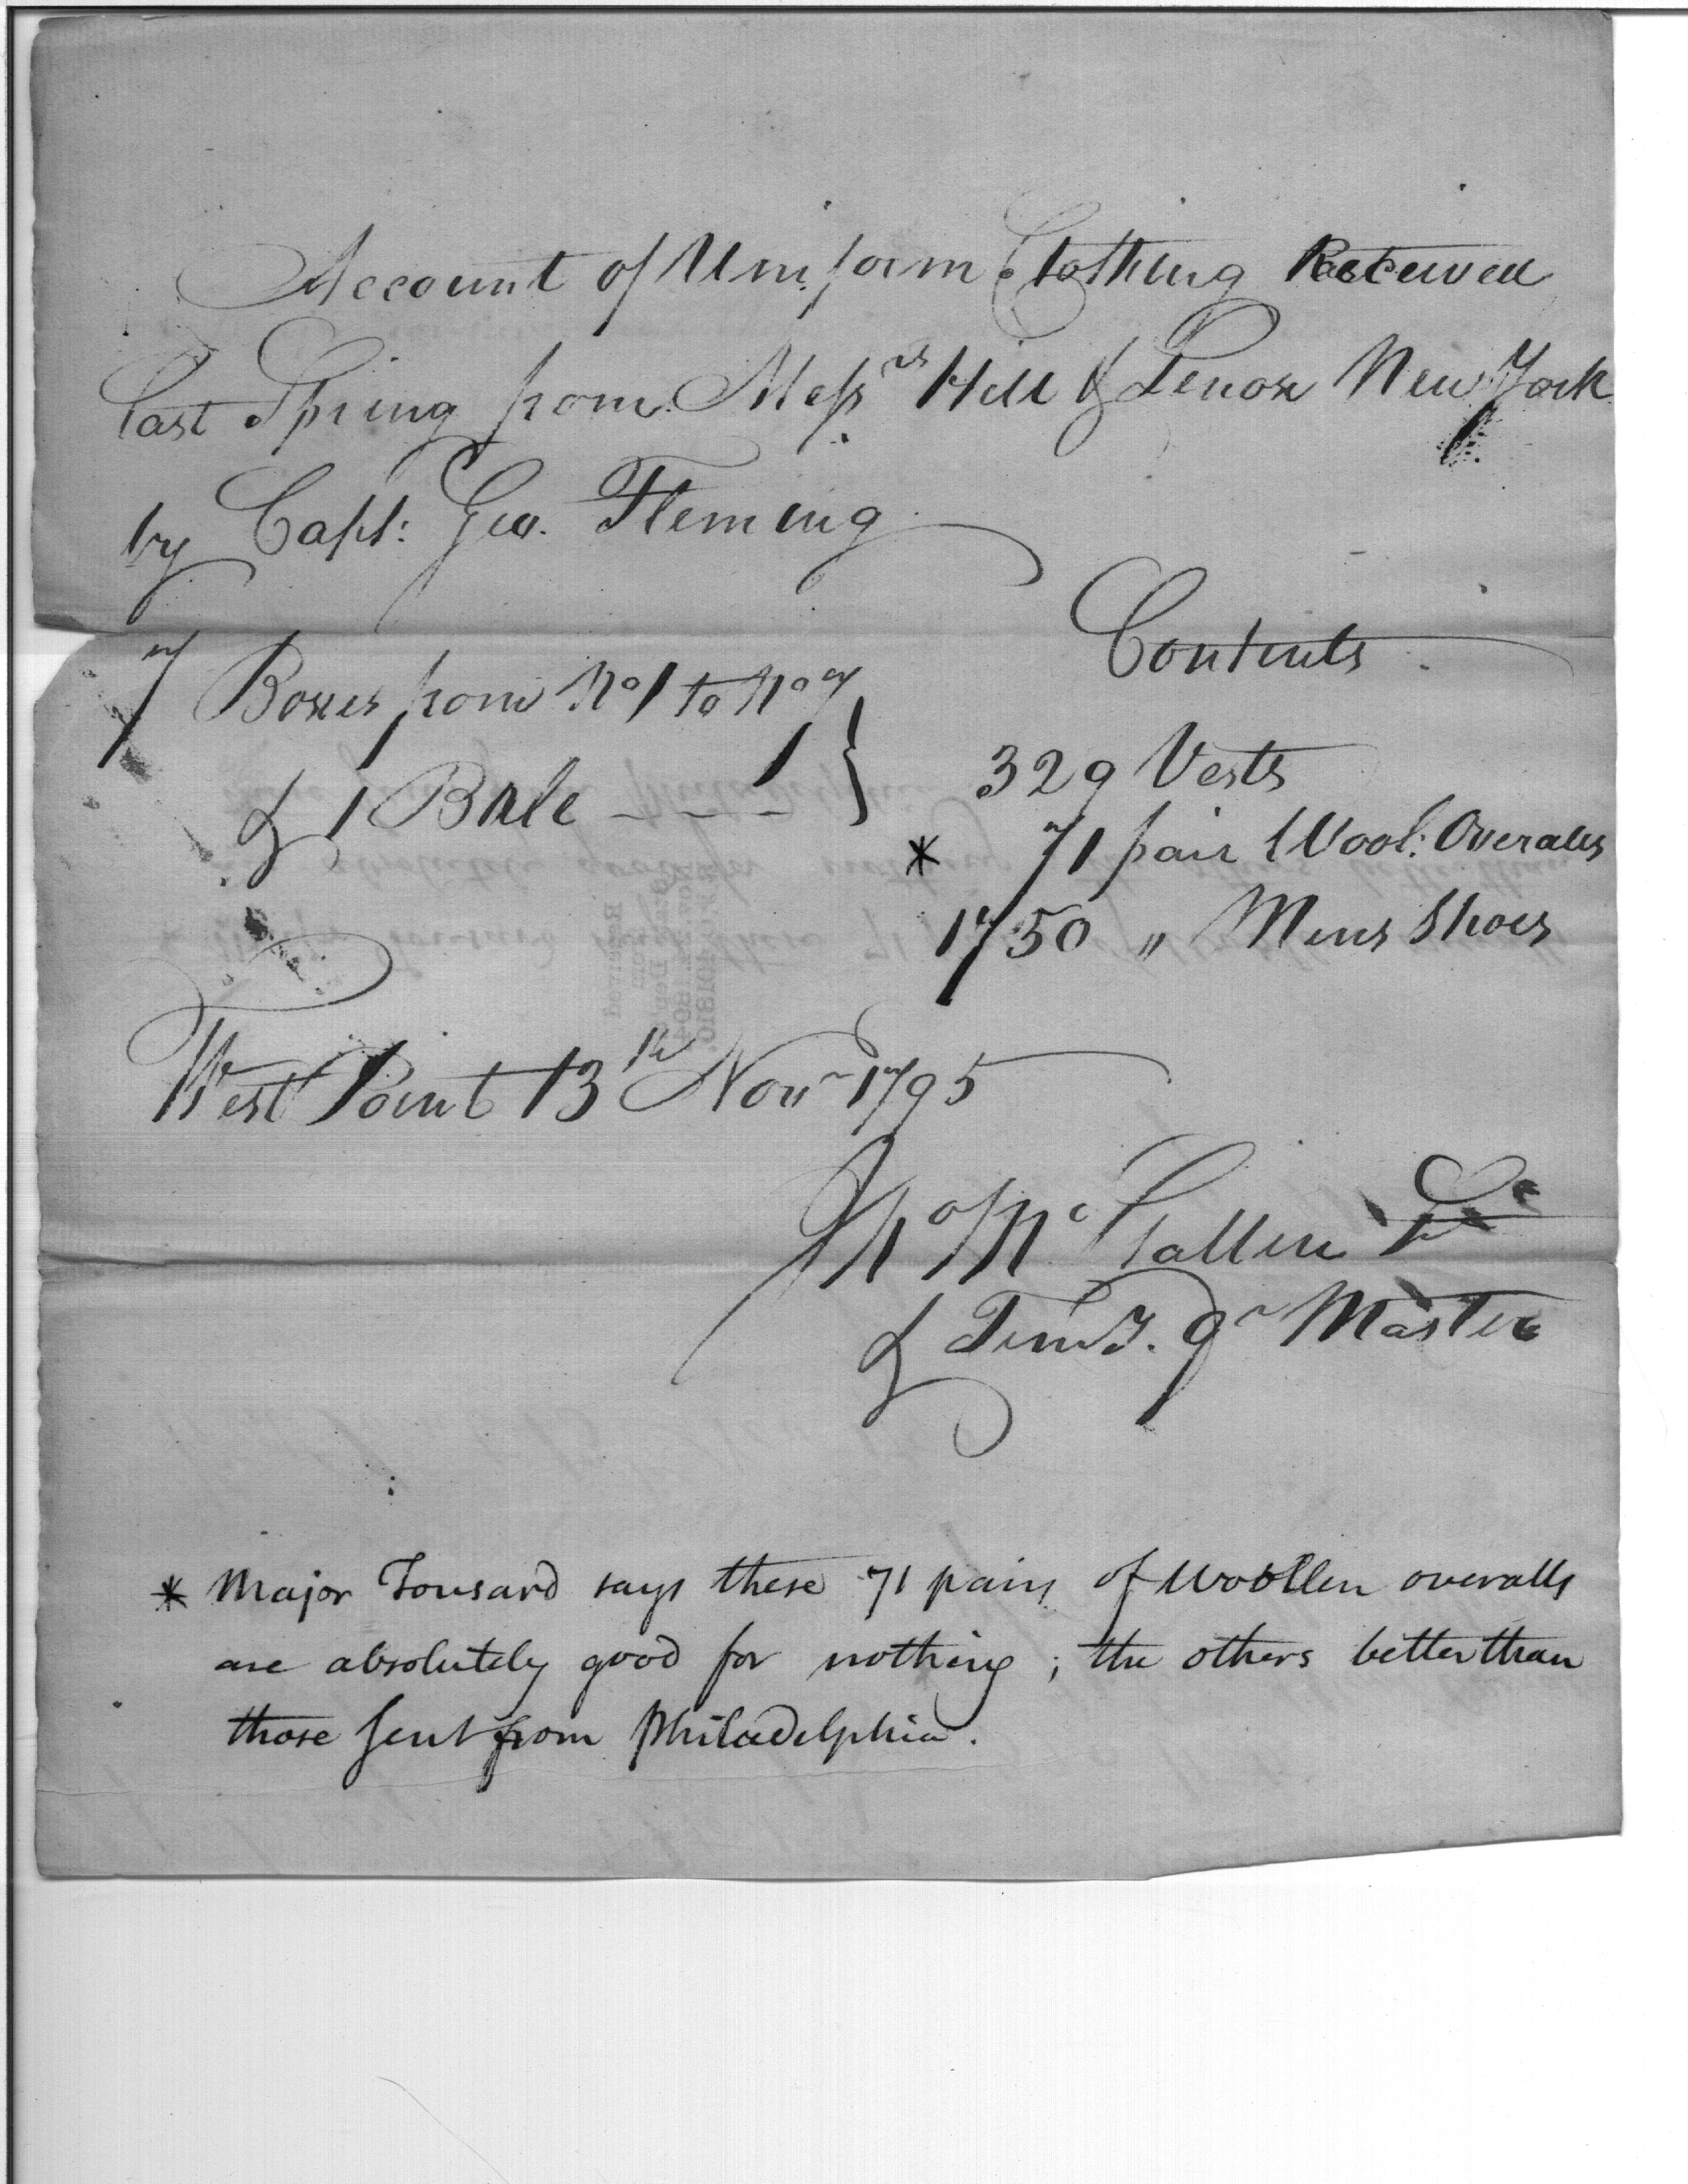 Account of Uniform Clothing Received
last Spring from Messrs Hill & Lenox New York
by Capt: Geo. Fleming
Contents
7 Boxes from No 1 to No 7
& 1 Bale - - - 1 }
329 Vests
* 71 pair Wool: Overalls
1750 " Mens Shoes
West Point 13th Novr 1795
Tho Mc Lt
& Temy. Qr Master
* Major Tousard says these 71 pairs of woollen overalls
are absolutely good for nothing; the others better than
those sent from Philadelphia.